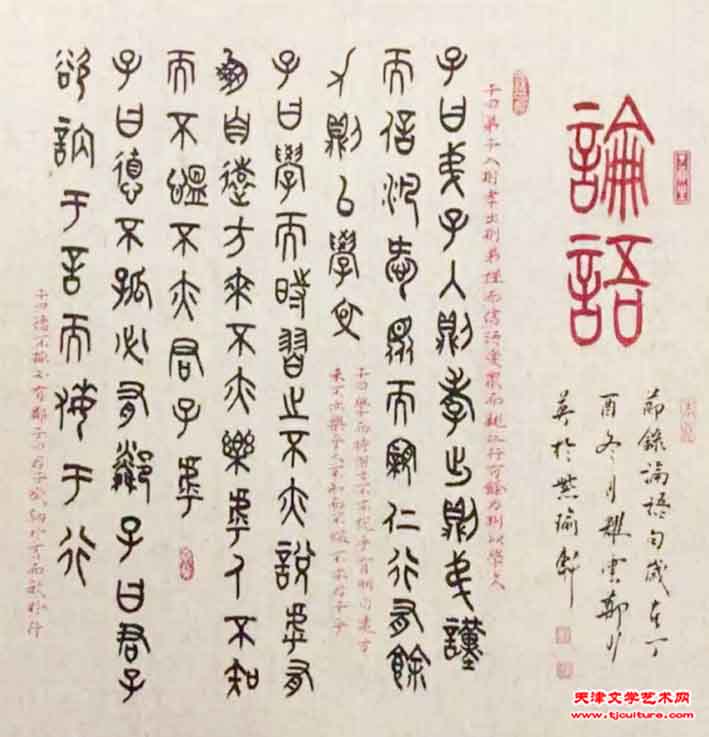 論語
節錄論語句歲在丁
酉冬月
英於燕瑜軒
子曰弟子入則孝出則弟謹而信汎愛眾而親仁行有餘力則以學文
子曰弟子入則孝出則弟謹
而信汎愛眾而親仁行有餘
力則以學文
子曰學而時習之不亦說乎有朋自遠方
來不亦樂乎人不知而不慍不亦君子乎
子曰學而時習之不亦說乎有
朋自遠方來不亦樂乎人不知
而不慍不亦君子乎
子曰德不孤必有鄰子曰君子
欲訥于言而敏于行
子曰德不孤必有鄰子曰君子欲訥於言而敏於行
天津文学艺术网
www.tjculture.com